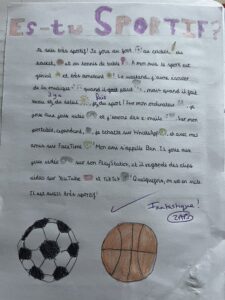 Es-tu SPORTIF?
Je suis très sportif! Je joue au foot au cricket, au
basket et au tennis de table! À mon avis le sport est
génial et très amusant! Le weekend, j'aime écouter
de la musique quand il fait mais quand il fait
beau du sport! Sur mon ordinateur je
joue aux jeux vidéo et j'envoie des e-mails. Sur mon
portable, cependant, je tchatte sur WhatsApp et avec mes
amis sur FaceTime! Mon ami s'appelle Ben. Il joue aux
jeux vidéo sur son PlayStation, et il regarde des clips
vidéo sur YouTube et TikTok. Quelquefois, on va en ville.
Il est aussi très sportif!
Fantastique!